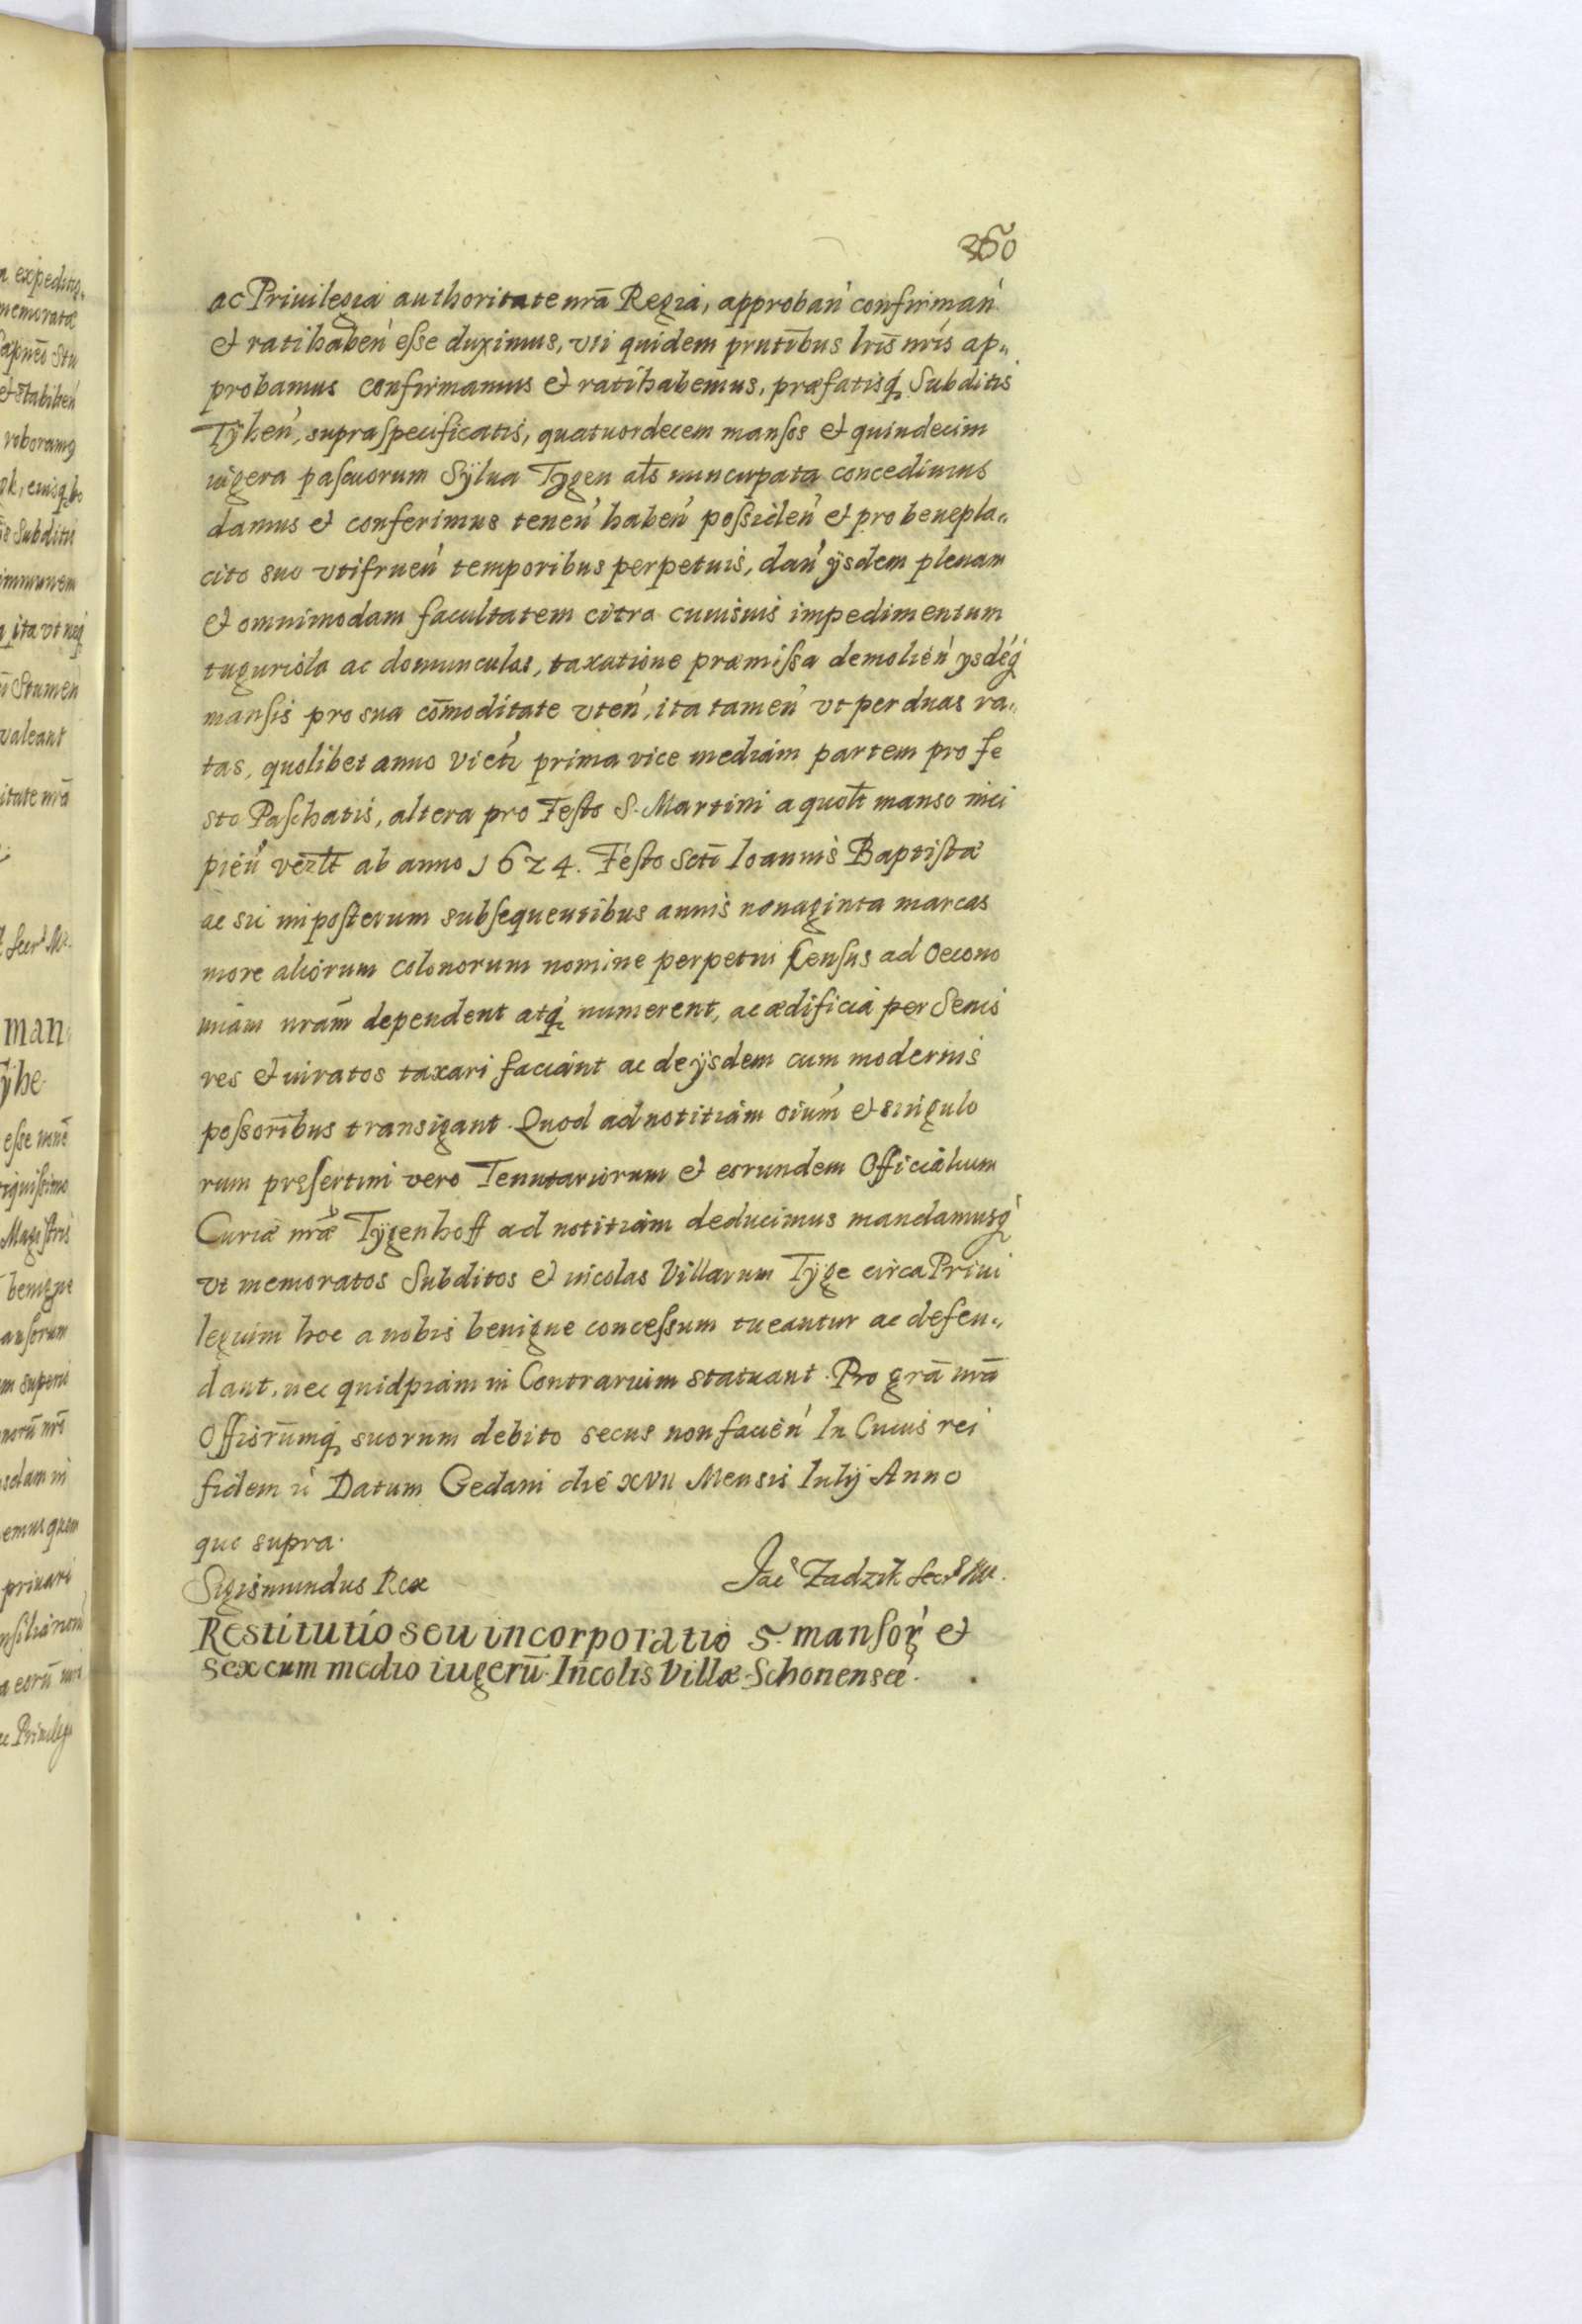 260
ac Priuilegia authoritate nrā Regia, approbań confirmań
et ratihabeń esse duximus, vti quidem pnūtibus lrīs nrīs ap„
probamus confirmamus et ratihabemus, præfatisq́ Subditis
Tÿheń, supraspecificatis, quatuordecem mansos et quindecim
iugera pascuorum Sÿlua Tygen als̄ nuncupata concedimus
damus et conferimus teneń habeń possideń et pro benepla„
cito suo vtifrueń temporibus perpetuis, dań ÿsdem plenam
et omnimodam facultatem citra cuiusuis impedimentum
tuguriola ac domunculas, taxatione præmissa demolień ysdéq́
mansis pro sua cōmoditate vteń, ita tameń vt per duas ra„
tas, quolibet anno vict́z prima vice mediam partem pro fe
sto Paschatis, altera pro Festo S. Martini a quolt̄ manso inci
pień vezlt̄ ab anno 1624. Festo Scti̅ Ioannis Baptistæ
ac sic imposterum subsequentibus annis nonaginta marcas
more aliorum colonorum nomine perpetui Census ad Oecono
miam nrām dependent atq́ numerent, ac ædificia per Senio
res et iuratos taxari faciant ac de ÿsdem cum modernis
possorībus transigant. Quod ad notitiam oiúm et singulo
rum pręsertim vero Tenutariorum et eorundem Officialium
Curiæ nrǣ Tÿgenhoff ad notitiam deducimus mandamusq́
vt memoratos Subditos et incolas Villarum Tÿge circa Priui
legium hoc a nobis benigne concessum tueantur ac defen„
dant, nec quidpiam in Contrarium statuant. Pro grā nrā
Offisrūmq́ suorum debito secus non facień In Cuius rei
fidem ć Datum Gedani die XVII Mensis Iulij Anno
quo supra.
Sigismundus Rex
Jac̃ Zadzik Secr̃ Mr.
Restitutio seu incorporatio 5. mansoꝝ́ et
sex cum medio iugerū. Incolis Villæ Schonensee.